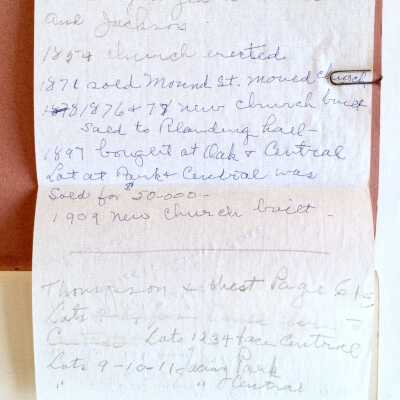 and Jackson
1854 church erected
1871 sold Mound St. moved church
1876 & 78 new church built
Sold to Planding hall -
1897 bought at Oak & Central
Lot at Park & Central was
Sold for $50-000 -
1909 new church built -
Thompson & West Page 615
Lots
Central Lots 1234 face Central
Lots 9-10-11 facing Park
" " Central